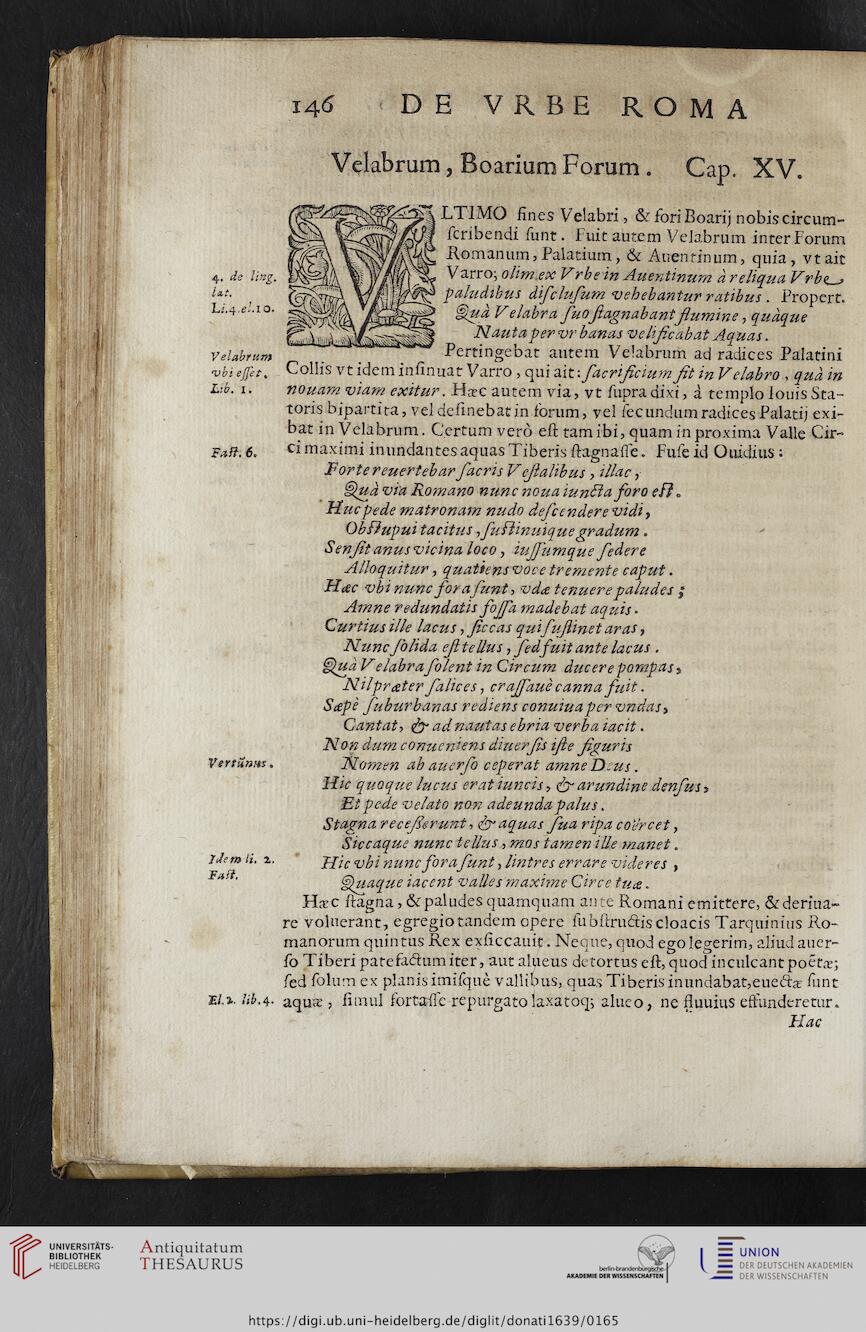 146 DE VRBE ROMA
Velabrum, Boarium Forum. Cap. XV.
VLTIMO fines Velabri, & fori Boarij nobis circum-
scribendi sunt. Fuit autem Velabrum inter Forum
Romanum, Palatium, & Auentinum, quia, vt ait
4. de ling.
lat.
Varro; olim ex Vrbe in Auentinum à reliqua Vrbe
paludibus disclusum vehebantur ratibus. Propert.
Li.4.el.10.
Quà Velabra suo stagnabant flumine, quàque
Nauta per vrbanas velificabat Aquas.
Velabrum
vbi esset.
Lib. 1.
Pertingebat autem Velabrum ad radices Palatini
Collis vt idem insinuat Varro, qui ait: sacrificium fit in Velabro, quà in
nouam viam exitur. Hæc autem via, vt supra dixi, à templo Iouis Sta-
toris bipartita, vel desinebat in forum, vel secundum radices Palatij exi-
bat in Velabrum. Certum verò est tam ibi, quam in proxima Valle Cir-
Fast. 6.
ci maximi inundantes aquas Tiberis stagnasse. Fuse id Ouidius:
Forte reuertebar sacris Vestalibus, illac,
Quà via Romano nunc noua iuncta foro est.
Huc pede matronam nudo descendere vidi,
Obstupui tacitus, sustinuique gradum.
Sensit anus vicina loco, iussumque sedere
Alloquitur, quatiens voce tremente caput.
Hæc vbi nunc fora sunt, vdæ tenuere paludes;
Amne redundatis fossa madebat aquis.
Curtius ille lacus, siccas qui sustinet aras,
Nunc solida est tellus, sed fuit ante lacus.
Quà Velabra solent in Circum ducere pompas,
Nil præter salices, crassauè canna fuit.
Sæpè suburbanas rediens conuiua per vndas,
Cantat, & ad nautas ebria verba iacit.
Non dum conueniens diuersis iste figuris
Vertũnus.
Nomen ab auerso ceperat amne Deus.
Hic quoque lucus erat iuncis, & arundine densus,
Et pede velato non adeunda palus.
Stagna recesserunt, & aquas sua ripa coërcet,
Siccaque nunc tellus, mos tamen ille manet.
Idem li. 2.
Fast.
Hic vbi nunc fora sunt, lintres errare videres,
Quaque iacent valles maxime Circe tuæ.
Hæc stagna, & paludes quamquam ante Romani emittere, & deriua-
re voluerant, egregio tandem opere substructis cloacis Tarquinius Ro-
manorum quintus Rex exsiccauit. Neque, quod ego legerim, aliud auer-
so Tiberi patefactum iter, aut alueus detortus est, quod inculcant poëtæ;
sed solum ex planis imisquè vallibus, quas Tiberis inundabat, euectæ sunt
El.2. lib.4.
aquæ, simul fortasse repurgato laxatoq; alueo, ne fluuius effunderetur.
Hac
UNIVERSITÄTS-
BIBLIOTHEK
HEIDELBERG
Antiquitatum
THESAURUS
berlin-brandenburgische
AKADEMIE DER WISSENSCHAFTEN
UNION
DER DEUTSCHEN AKADEMIEN
DER WISSENSCHAFTEN
https://digi.ub.uni-heidelberg.de/diglit/donati1639/0165